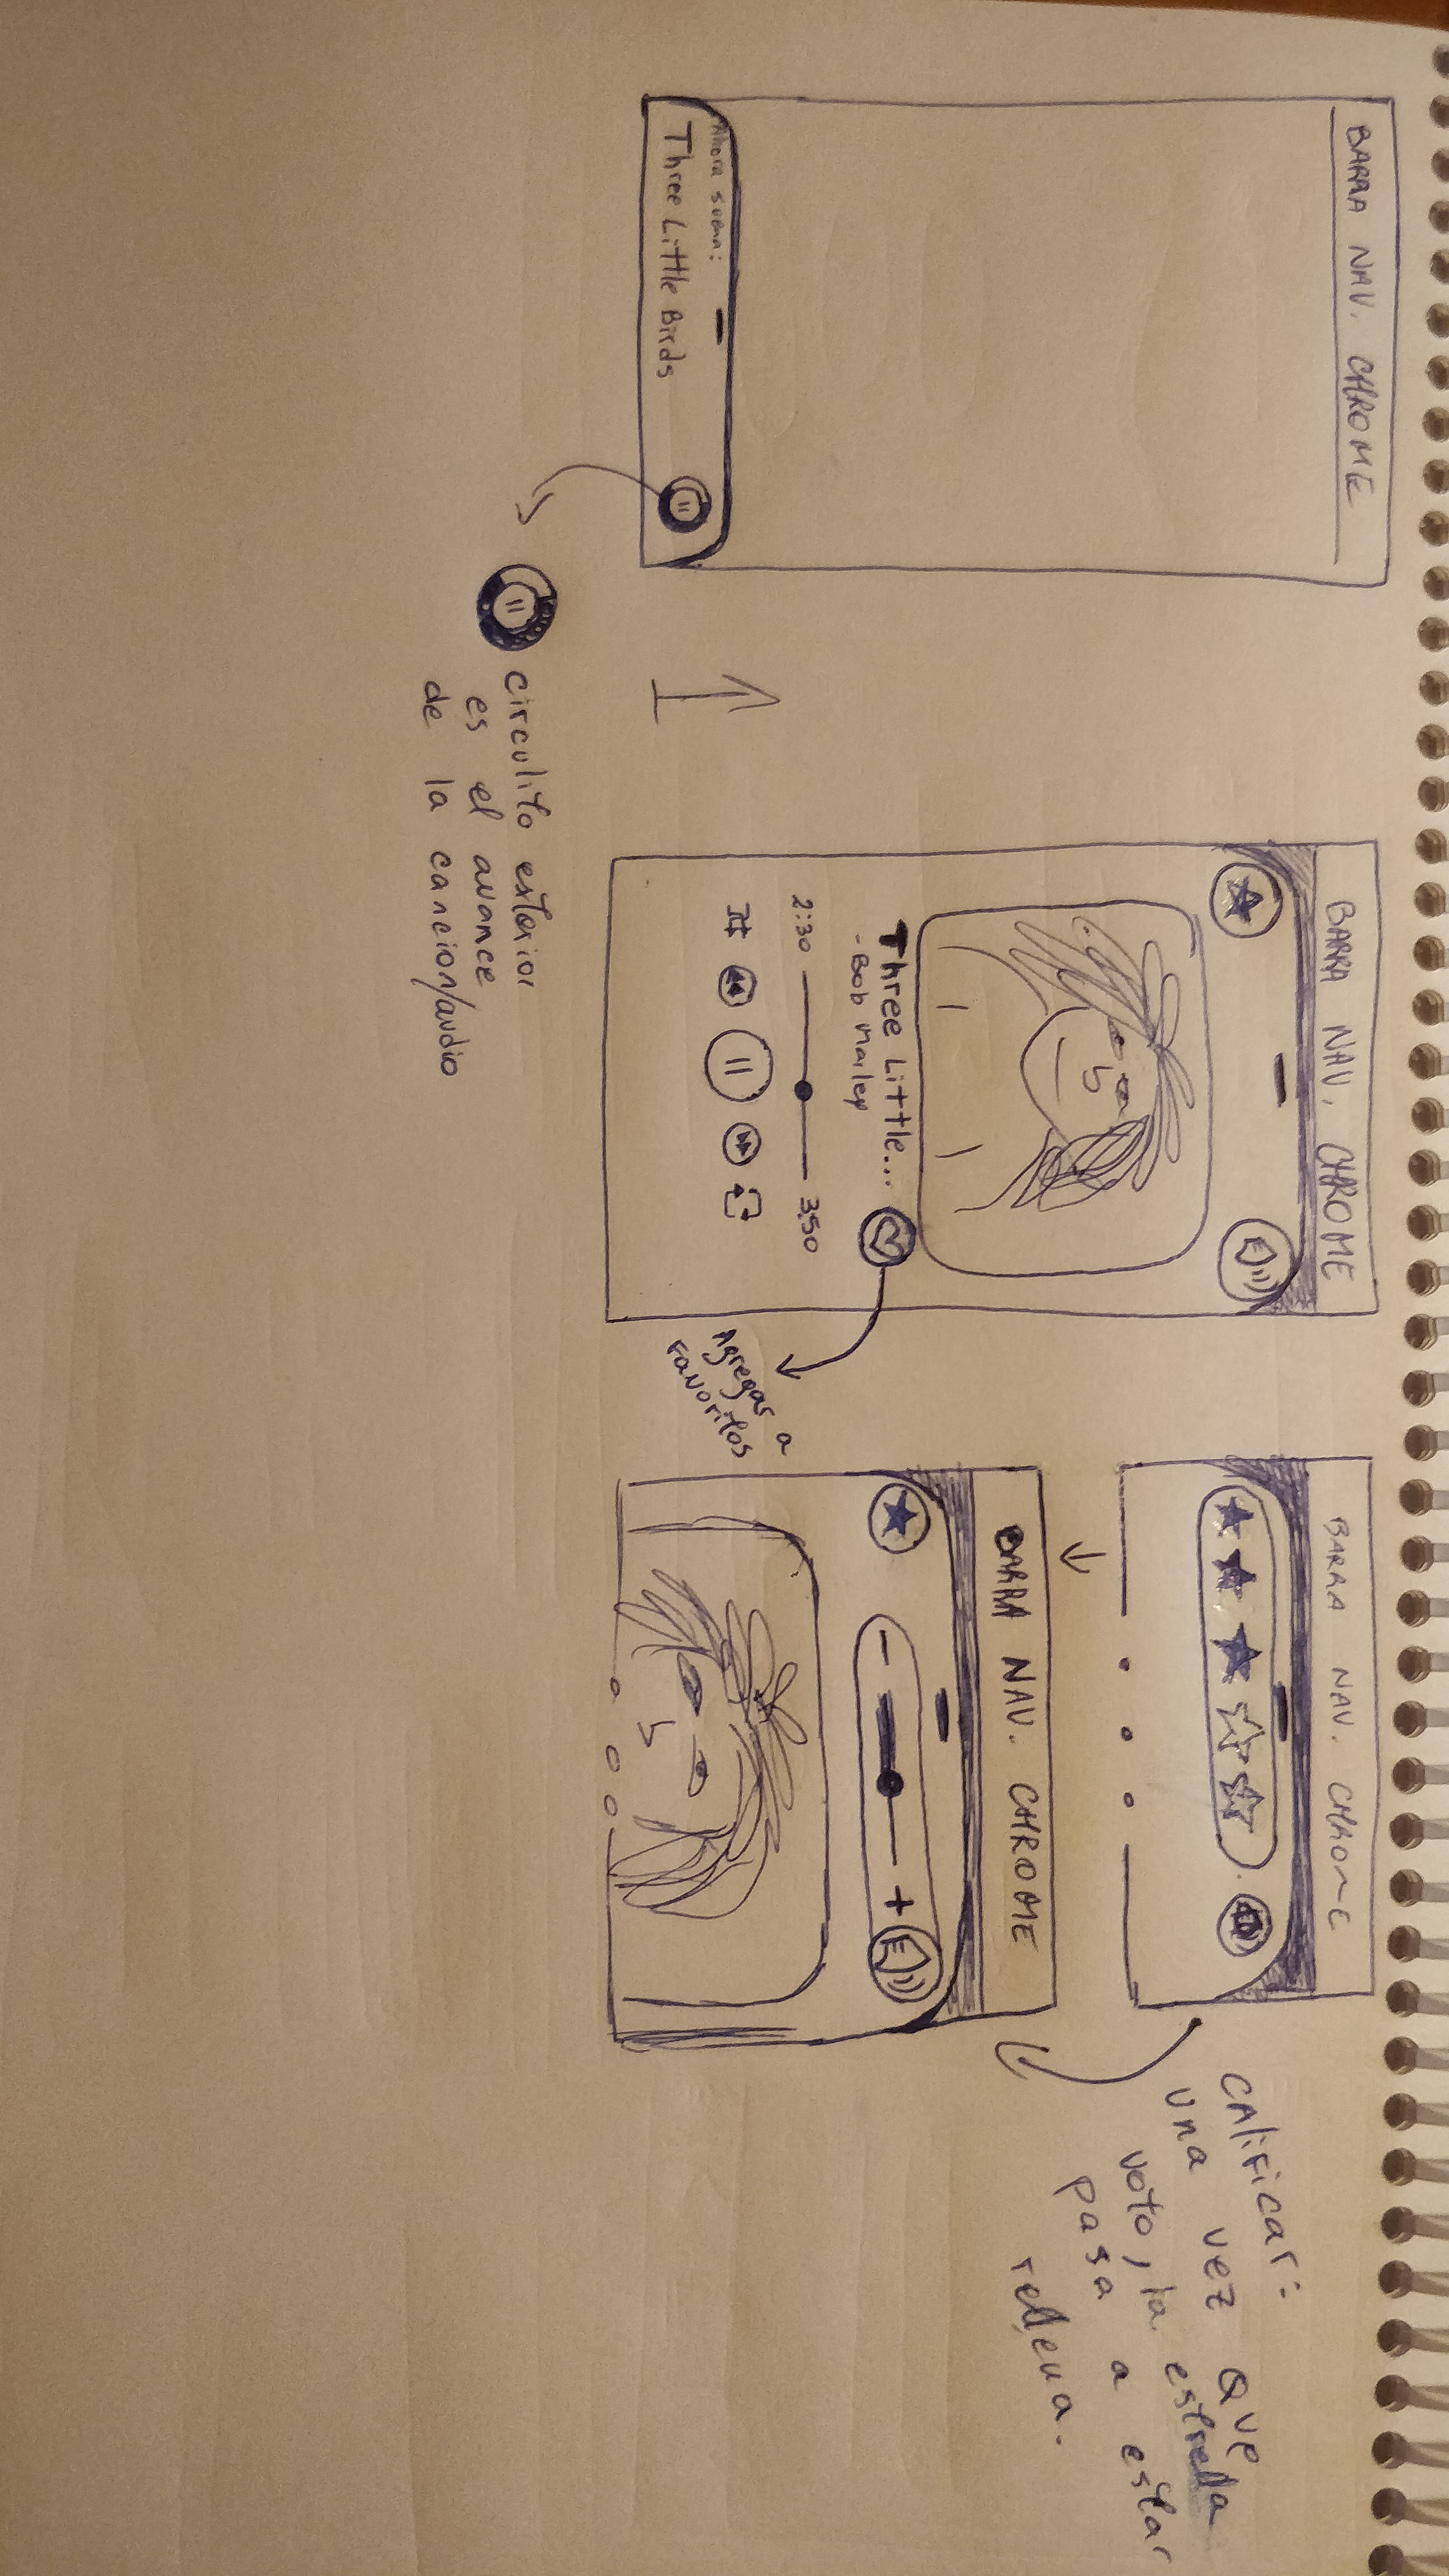 BARRA NAV. CHROME
Ahora suena:
Three Little Birds
circulito exterior
es el avance
de la cancion/audio
BARRA NAV. CHROME
Three Little...
- Bob Marley
2:30
3:50
Agregar a
Favoritos
BARRA NAV. CHROME
BARRA NAV. CHROME
- +
CAlificar:
una vez que
voto, la estrella
pasa a estar
rellena.